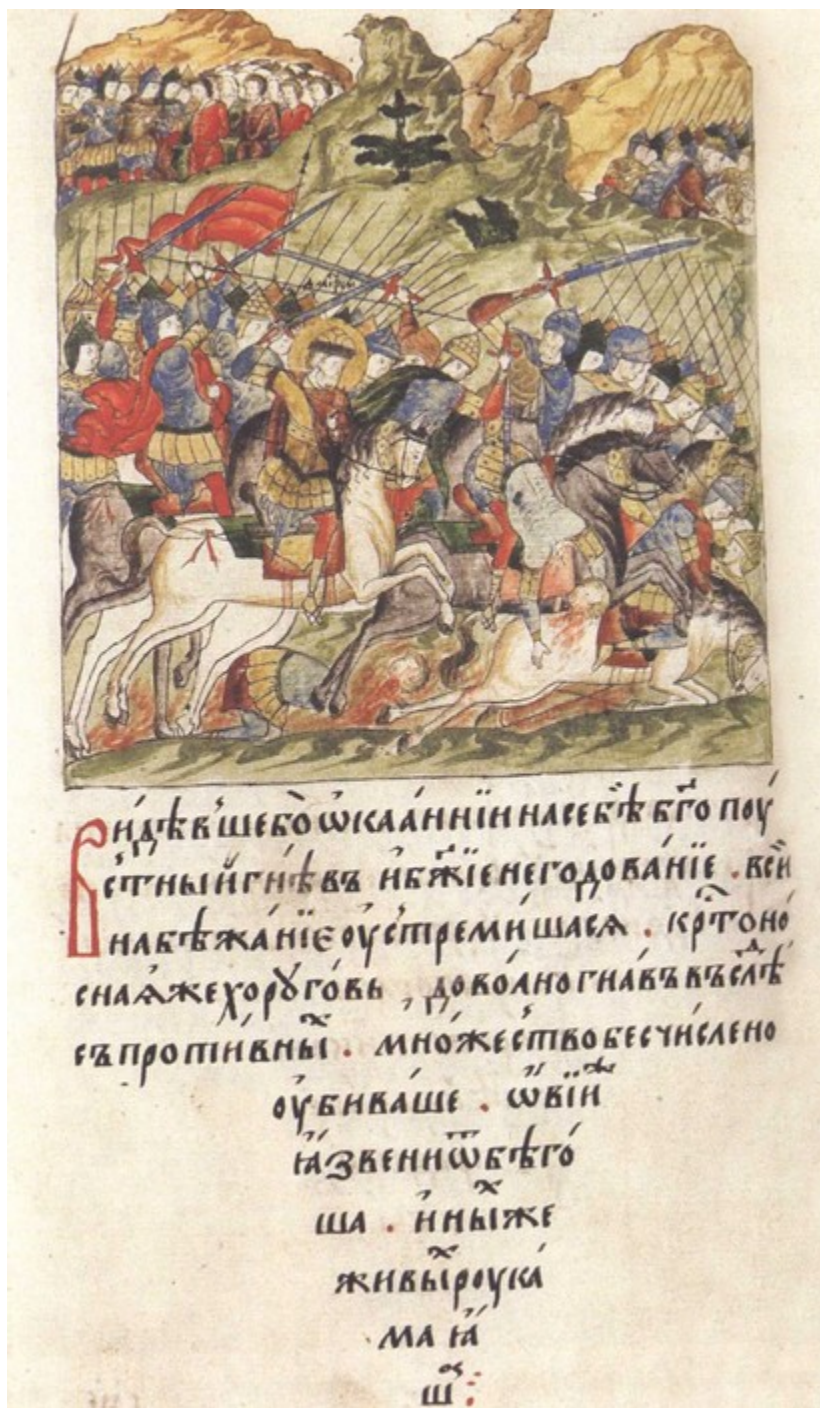 Ви́дѣвшебо̀ѡкаа́ннїинасебѣ бг҃опоу́
стныйгнѣвъ ибж҃їенегодова́нїе . вси
набѣжа́нїеоустреми́шася . крⷭ҇тоно́
снаѧжехорꙋго́вь , дово́лногна́въвъслѣⷣ
съпроти́вныⷯ . мно́жествобесчи́слено
оубива́ше . ѡвїиⷤ
ꙗ҆́звениѿбѣго́
ша . и҆ныⷯже
живыⷯроука́
ма ꙗ҆́
шⷭ҇ :